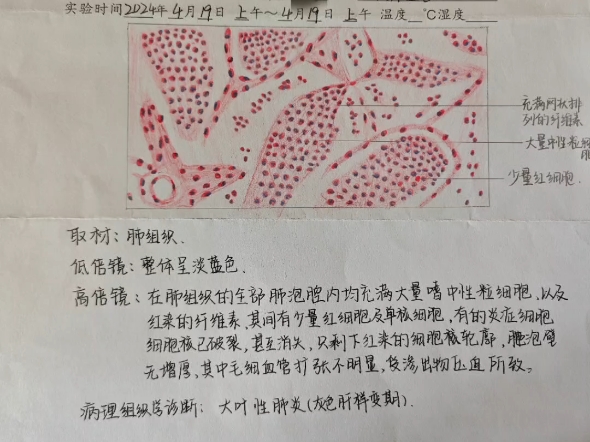 实验时间2024年4月19日 上午~4月19日 上午 温度__℃湿度
充满网状排
列的纤维素
大量中性粒细
胞
少量红细胞.
取材：肺组织.
低倍镜：整体呈淡蓝色.
高倍镜：在肺组织的全部肺泡腔内均充满大量嗜中性粒细胞，以及
红染的纤维素，其间有少量红细胞及单核细胞，有的炎症细胞
细胞核已破裂，甚至消失，只剩下红染的细胞核轮廓，肺泡壁
无增厚，其中毛细血管扩张不明显，受渗出物压迫所致。
病理组织学诊断：大叶性肺炎(灰色肝样变期).